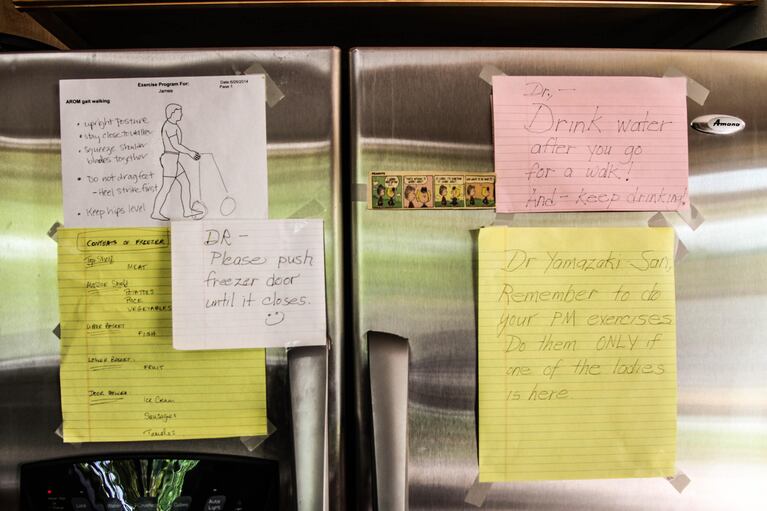 Exercise Program For:
James
Date 6/26/2014
Page 1
AROM gait walking
• upright posture
• stay close to walker
• squeeze shoulder
blades together
• Do not drag feet
- Heel strike first
• Keep hips level
CONTENTS OF FREEZER
Top Shelf
MEAT
Middle Shelf
POTATOES
RICE
VEGETABLES
Upper Basket
FISH
Lower Basket
FRUIT
Door
Ice Cream
Sausages
Tamales
DR-
Please push
freezer door
until it closes.
PEANUTS
Dr.,-
Drink water
after you go
for a walk!
And - Keep drinking!
Amana
Dr Yamazaki-San,
Remember to do
your PM exercises.
Do them ONLY if
one of the ladies
is here.